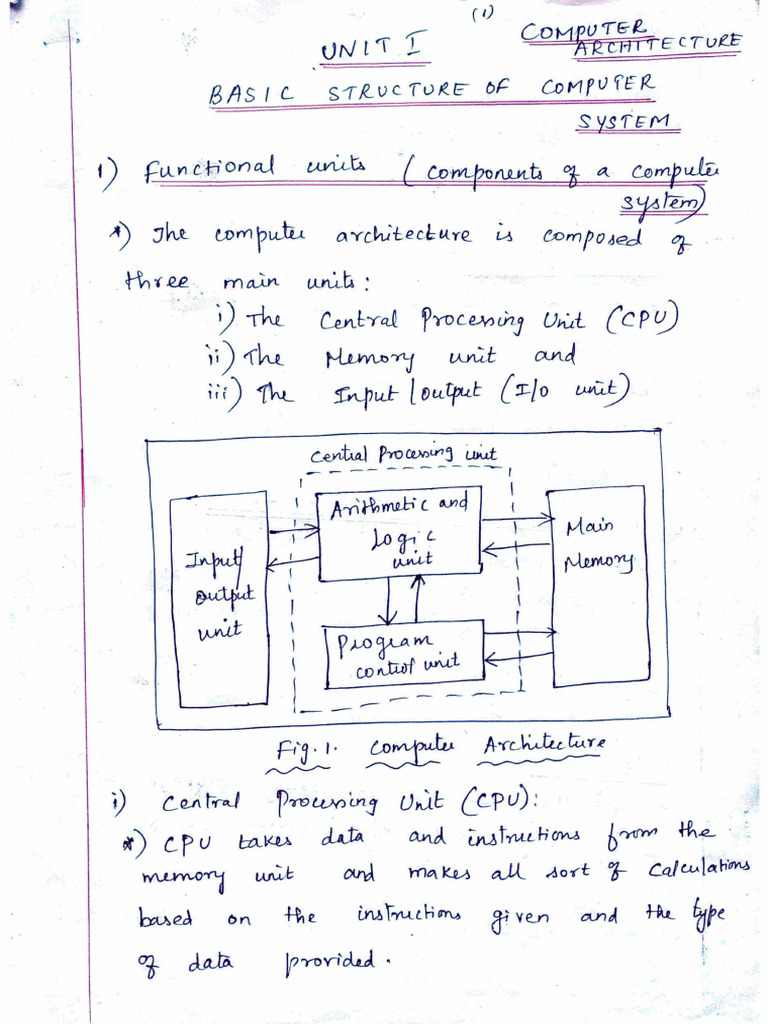 (1)
UNIT I
COMPUTER
ARCHITECTURE
BASIC STRUCTURE OF COMPUTER
SYSTEM
1) Functional units (components of a computer
system)
*) The computer architecture is composed of
three main units:
i) The Central Processing Unit (CPU)
ii) The Memory unit and
iii) The Input/output (I/o unit)
Central Processing unit
Arithmetic and
Logic
unit
Input/
output
unit
Main
Memory
Program
control unit
Fig. 1. Computer Architecture
i) Central Processing Unit (CPU):
*) CPU takes data and instructions from the
memory unit and makes all sort of calculations
based on the instructions given and the type
of data provided.